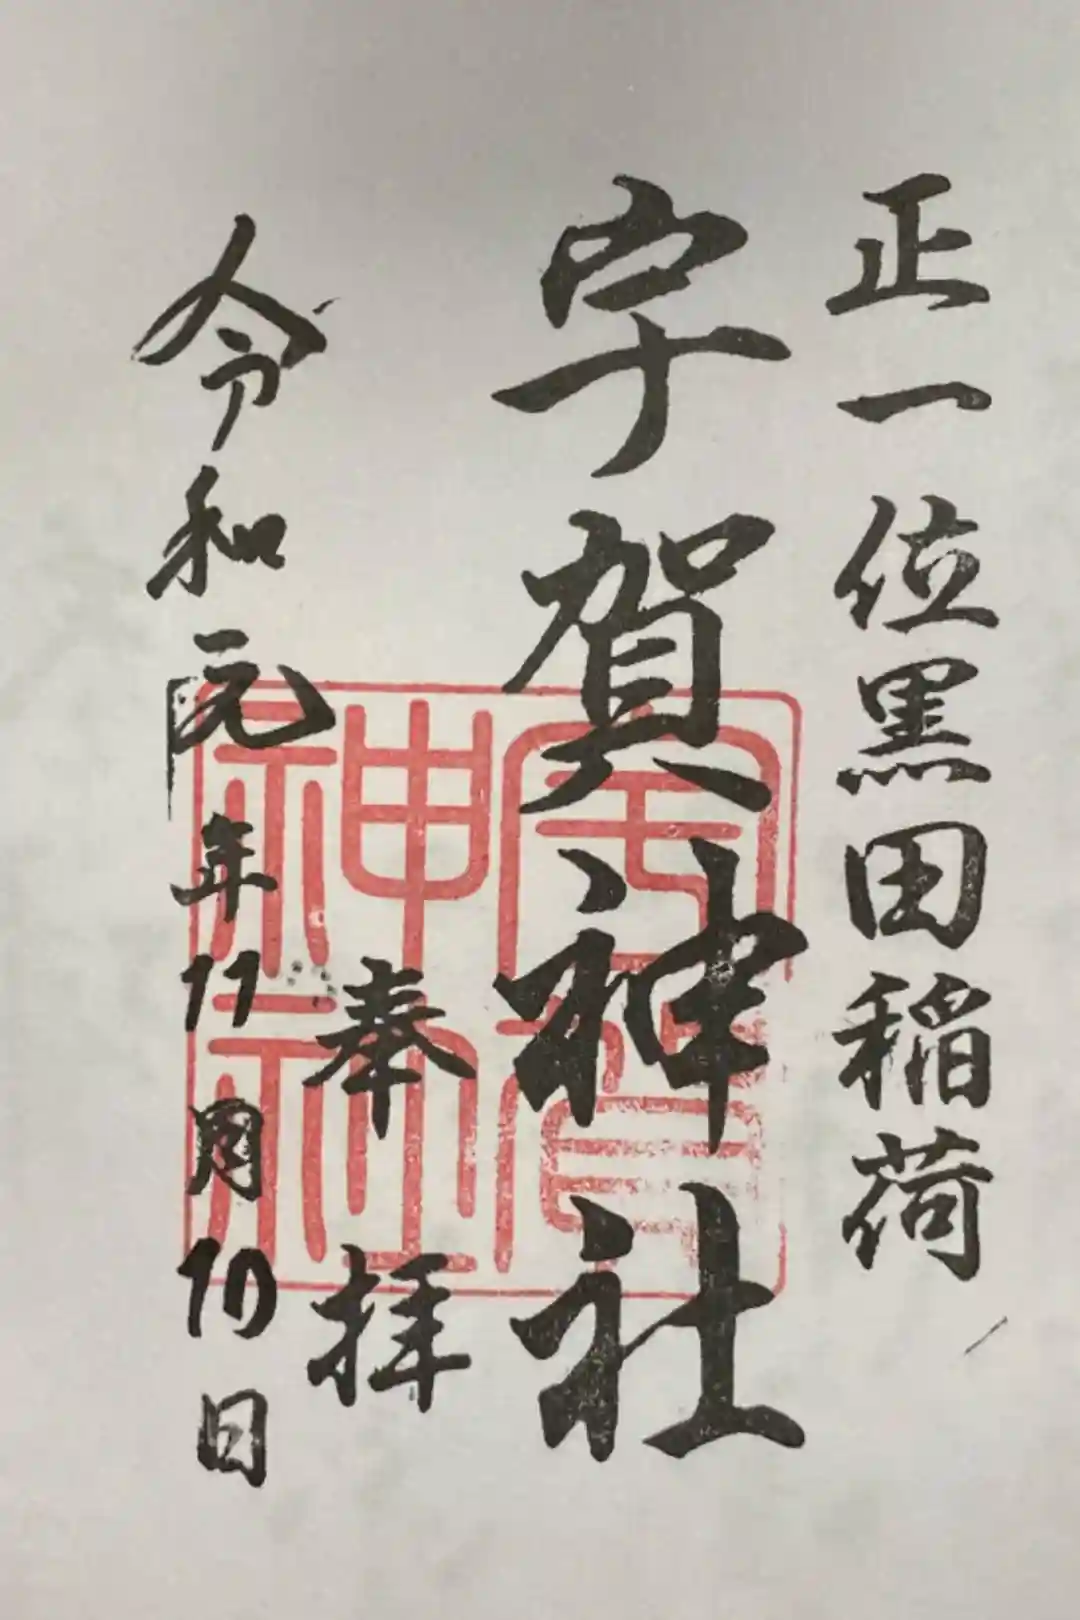 正一位黒田稲荷
宇賀神社
奉拝
令和元年11月10日
宇賀
神社